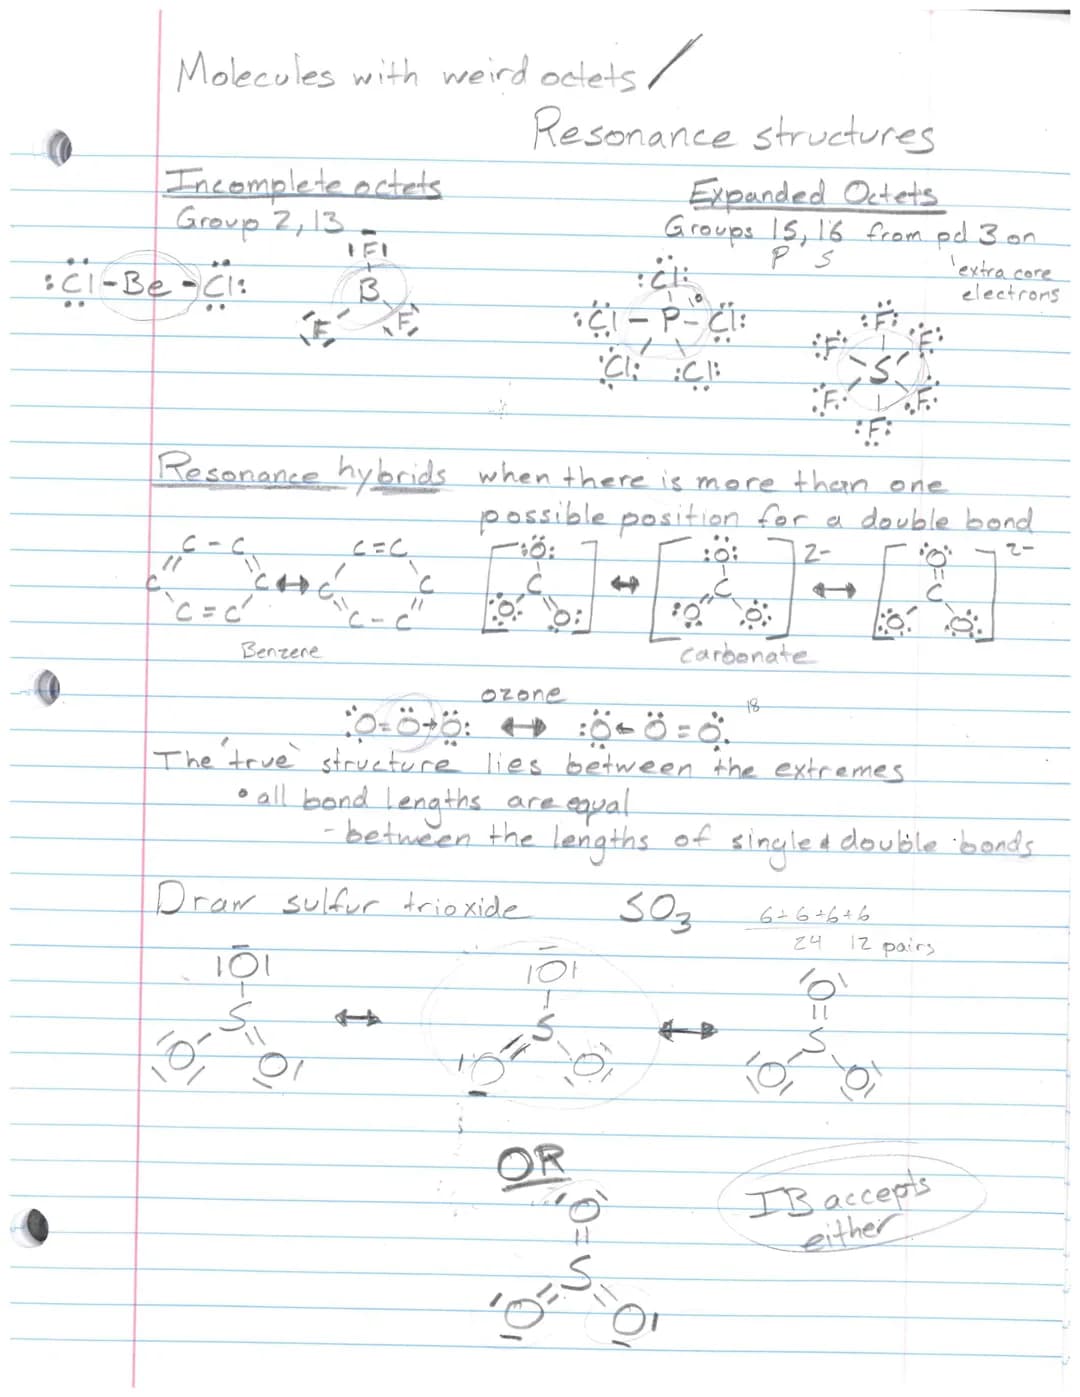 Molecules with weird octets /
Resonance structures
Incomplete octets
Group 2, 13
:Cl-Be-Cl:
F
B
F F
Expanded Octets
Groups 15, 16 from pd 3 on
P S
extra core
electrons
:Cl:
:Cl - P - Cl:
:Cl: :Cl:
:F:
:F: :F:
S
:F: :F:
:F:
Resonance hybrids when there is more than one
possible position for a double bond
C - C
C C
C = C
↔
C=C
C C
C - C
Benzene
:O:
C
:O: O:
↔
:O: 2-
C
:O :O:
↔
:O: 2-
C
:O: :O:
carbonate
ozone
:O=O→O: ↔ :O←O=O: 18
The 'true' structure lies between the extremes
• all bond lengths are equal
- between the lengths of single & double bonds
Draw sulfur trioxide SO3 6+6+6+6
24 12 pairs
|O|
S
O O
↔
|O|
S
O O
↔
O
S
O O
OR
O
S
O O
IB accepts
either